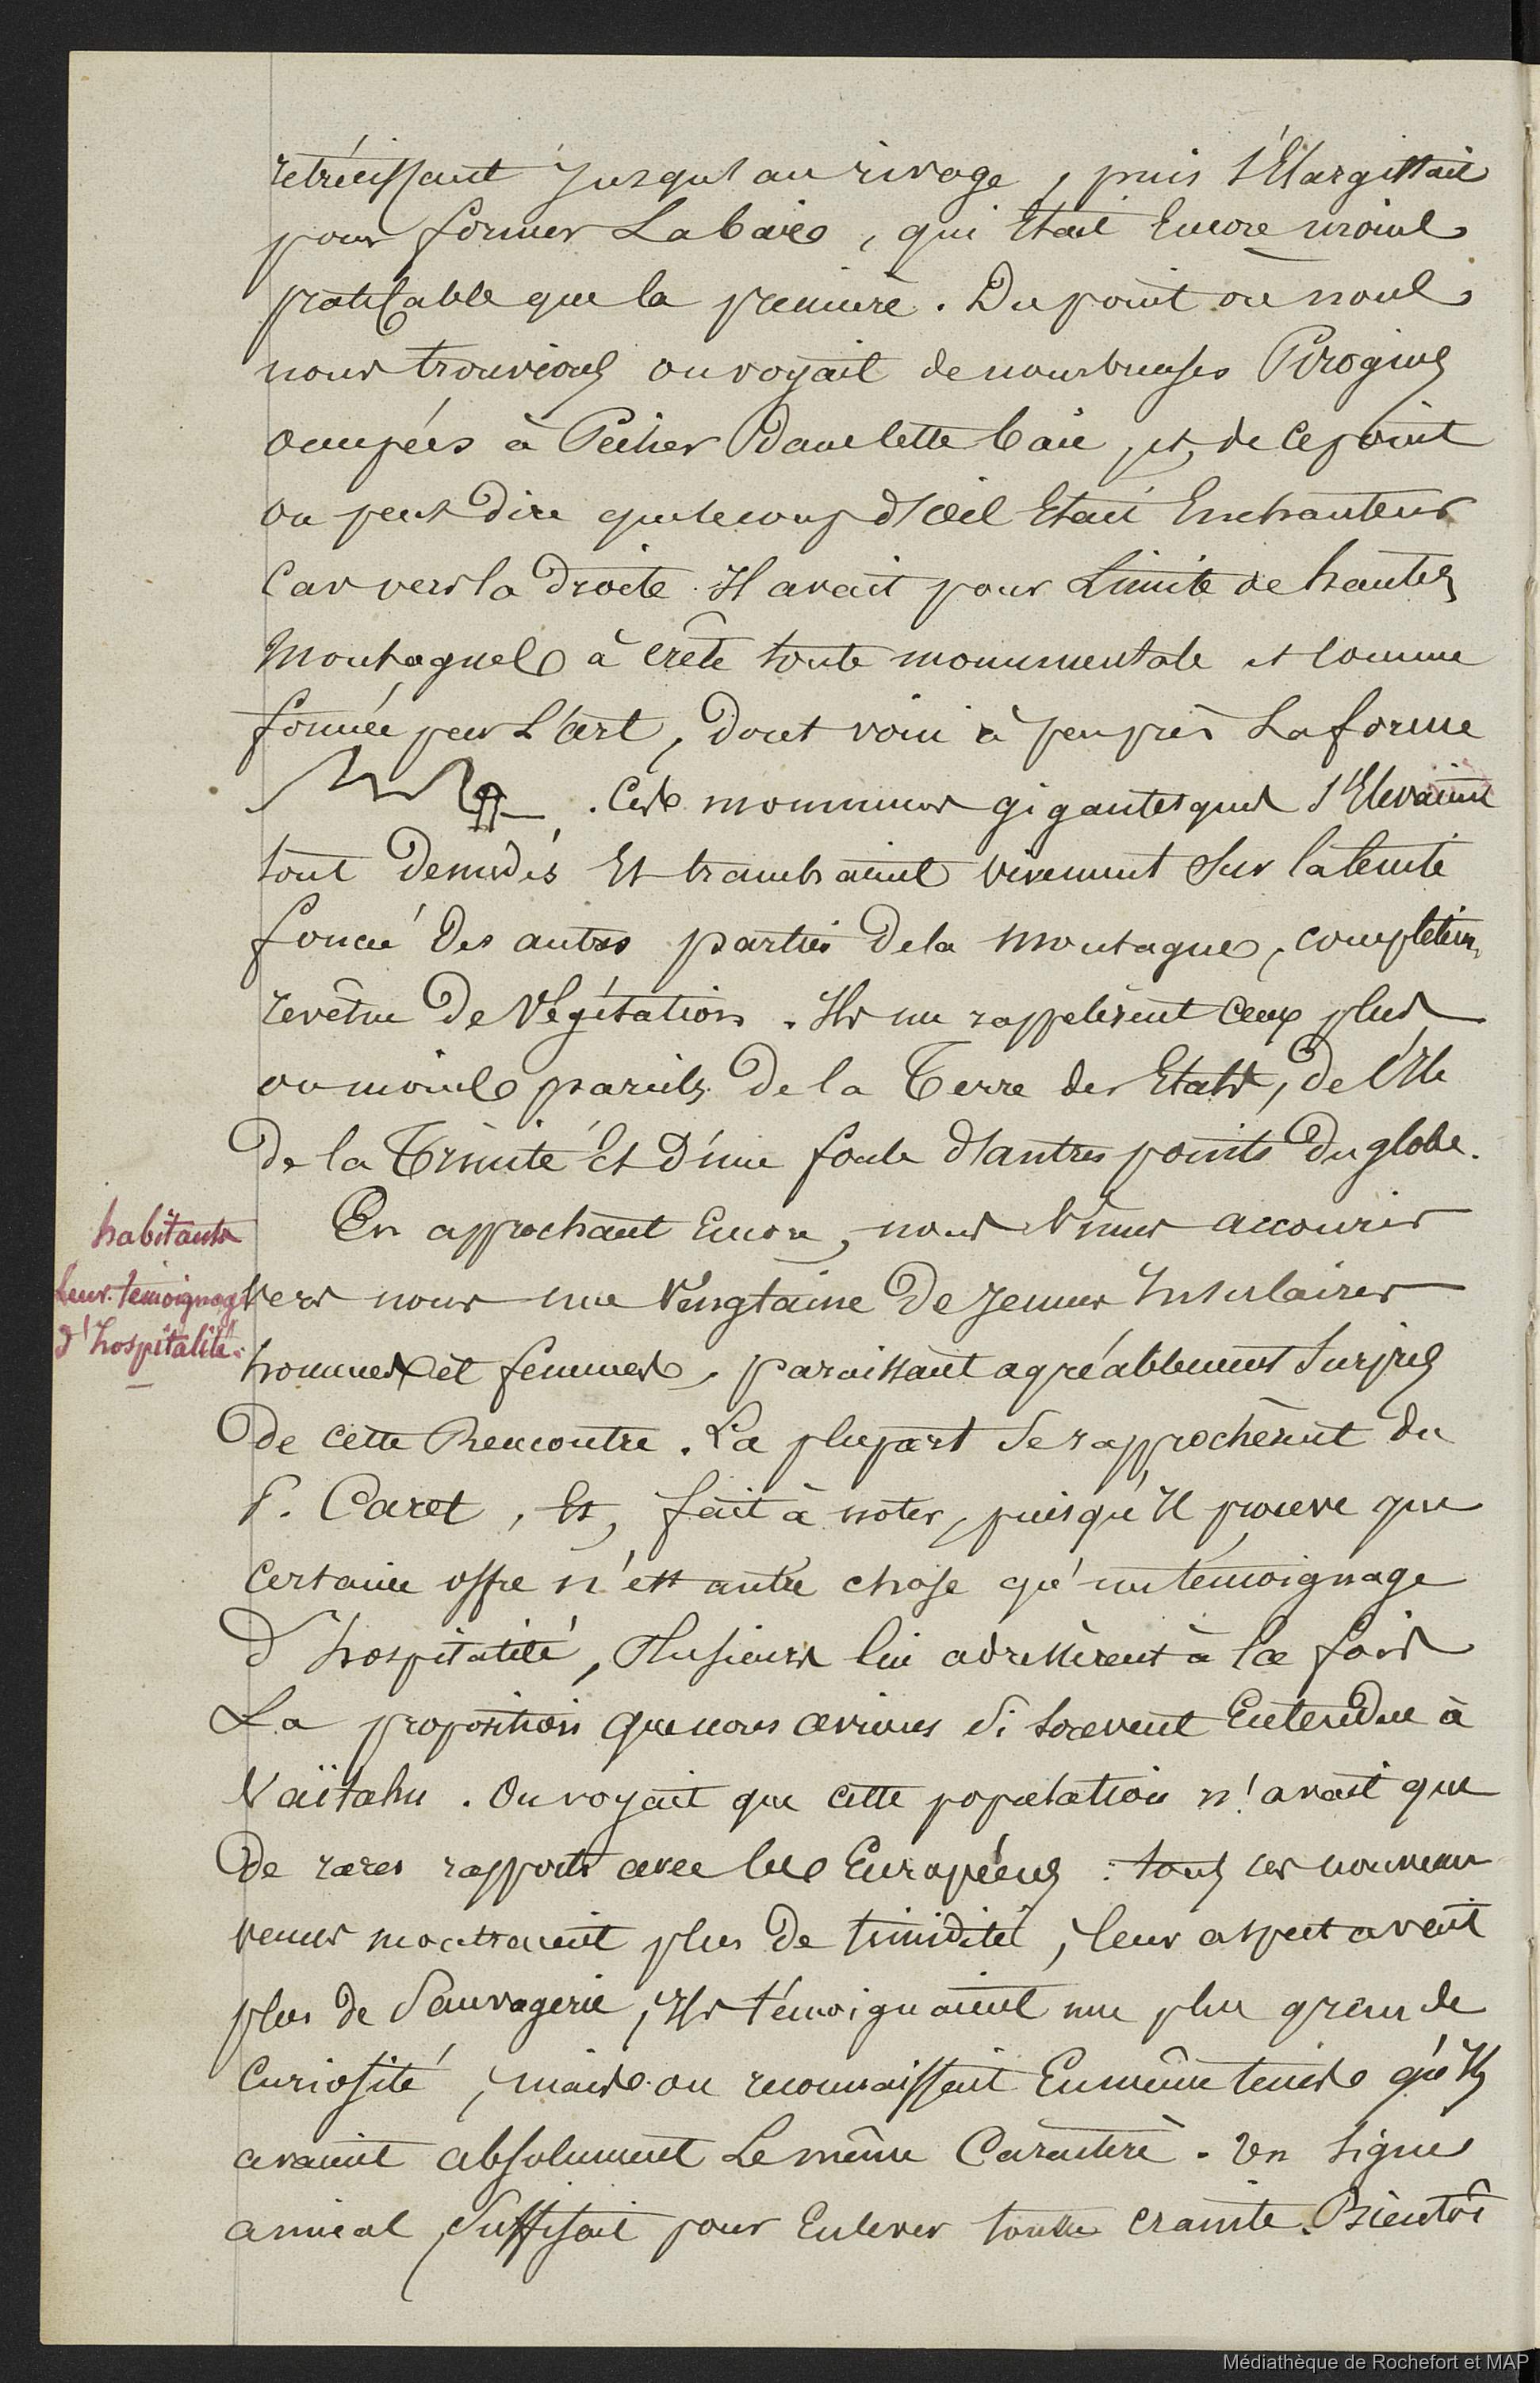 rétrécissant jusqu'au rivage, puis s'Elargissait
pour former La baie, qui Etait Encore moins
praticable que la première. Du point où nous
nous trouvions on voyait de nombreuses Pirogues
occupées à Pêcher Dans cette baie, et, de ce point
on peut Dire que le coup d'œil Etait Enchanteur
Car vers la Droite Il avait pour Limite de hautes
Montagnes à crête toute monumentale et comme
formée par L'art, Dont voici à peu près La forme
. Ces mornes gigantesques s'Elevaient
tout Denudés Et tranchaient vivement Sur la teinte
foncée Des autres parties De la Montagne, completemt
revêtue De Végétation. Ils me rappelèrent Ceux plus
ou moins pareils De la Terre des Etats, De l'Ile
De la Trinité Et D'une foule d'autres points Du globe.
En approchant Encore, nous Vimes accourir
habitants
leur témoignage
d'hospitalité.
Vers nous une Vingtaine De Jeunes Insulaires
hommes et femmes, paraissant agréablement Surpris
De cette Rencontre. La plupart Se rapprochèrent du
P. Caret, Et, fait à noter, puisqu'Il prouve que
certaine offre n'est autre chose qu'un témoignage
D'hospitalité, Plusieurs lui adressèrent à la fois
La proposition que nous avions Si souvent Entendue à
Vaïtahu. On voyait que cette population n'avait que
De rares rapports avec les Européens : tous ces nouveau
venus montraient plus De timidité, leur aspect avait
plus de Sauvagerie, Ils témoignaient une plus grande
Curiosité, mais on reconnaissait En même temps qu'Ils
avaient absolument Le même Caractère. Un signe
amical Suffisait pour Enlever toute crainte. Bientôt
Médiathèque de Rochefort et MAP